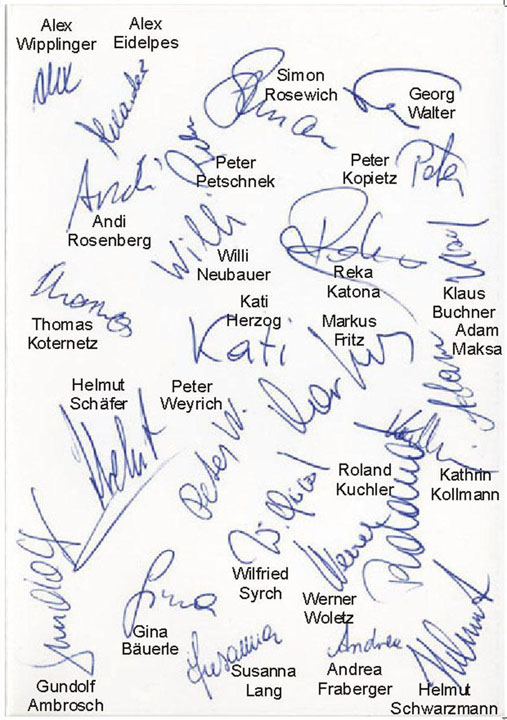 Alex
Wipplinger
Alex
Eidelpes
Alex
Alexander
Simon
Rosewich
Simon
Georg
Walter
Peter
Petschnek
Peter
Kopietz
Peter
Andi
Andi
Rosenberg
Willi
Willi
Neubauer
Reka
Reka
Katona
Klaus
Buchner
Klaus
Thomas
Thomas
Koternetz
Kati
Herzog
Kati
Markus
Fritz
Markus
Adam
Maksa
Adam
Helmut
Schäfer
Helmut
Peter
Weyrich
Peter W.
Roland
Kuchler
Roland
Kathrin
Kollmann
Wilfried
Wilfried
Syrch
Werner
Werner
Woletz
Gina
Gina
Bäuerle
Gundolf
Gundolf
Ambrosch
Susanna
Susanna
Lang
Andrea
Andrea
Fraberger
Helmut
Helmut
Schwarzmann